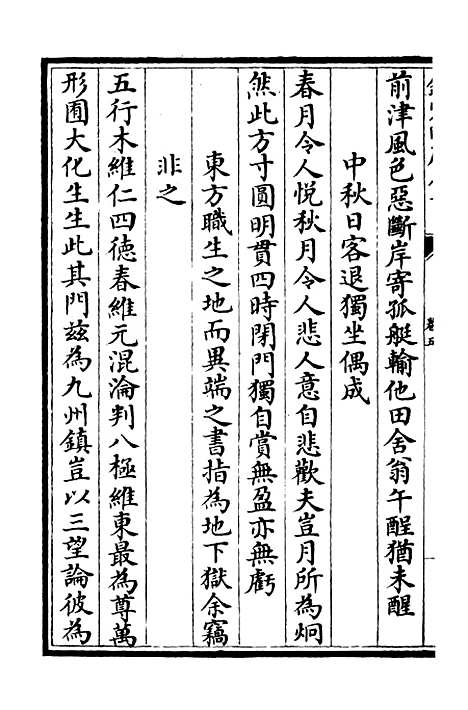 前津風色惡斷岸寄孤艇輸他田舍翁午醒猶未醒
中秋日客退獨坐偶成
春月令人悅秋月令人悲人意自悲歡夫豈月所為炯
然此方寸圓明貫四時閉門獨自賞無盈亦無虧
東方職生之地而異端之書指為地下獄余竊
非之
五行木維仁四德春維元混淪判八極維東最為尊萬
形囿大化生生此其門兹為九州鎮豈以三望論彼為